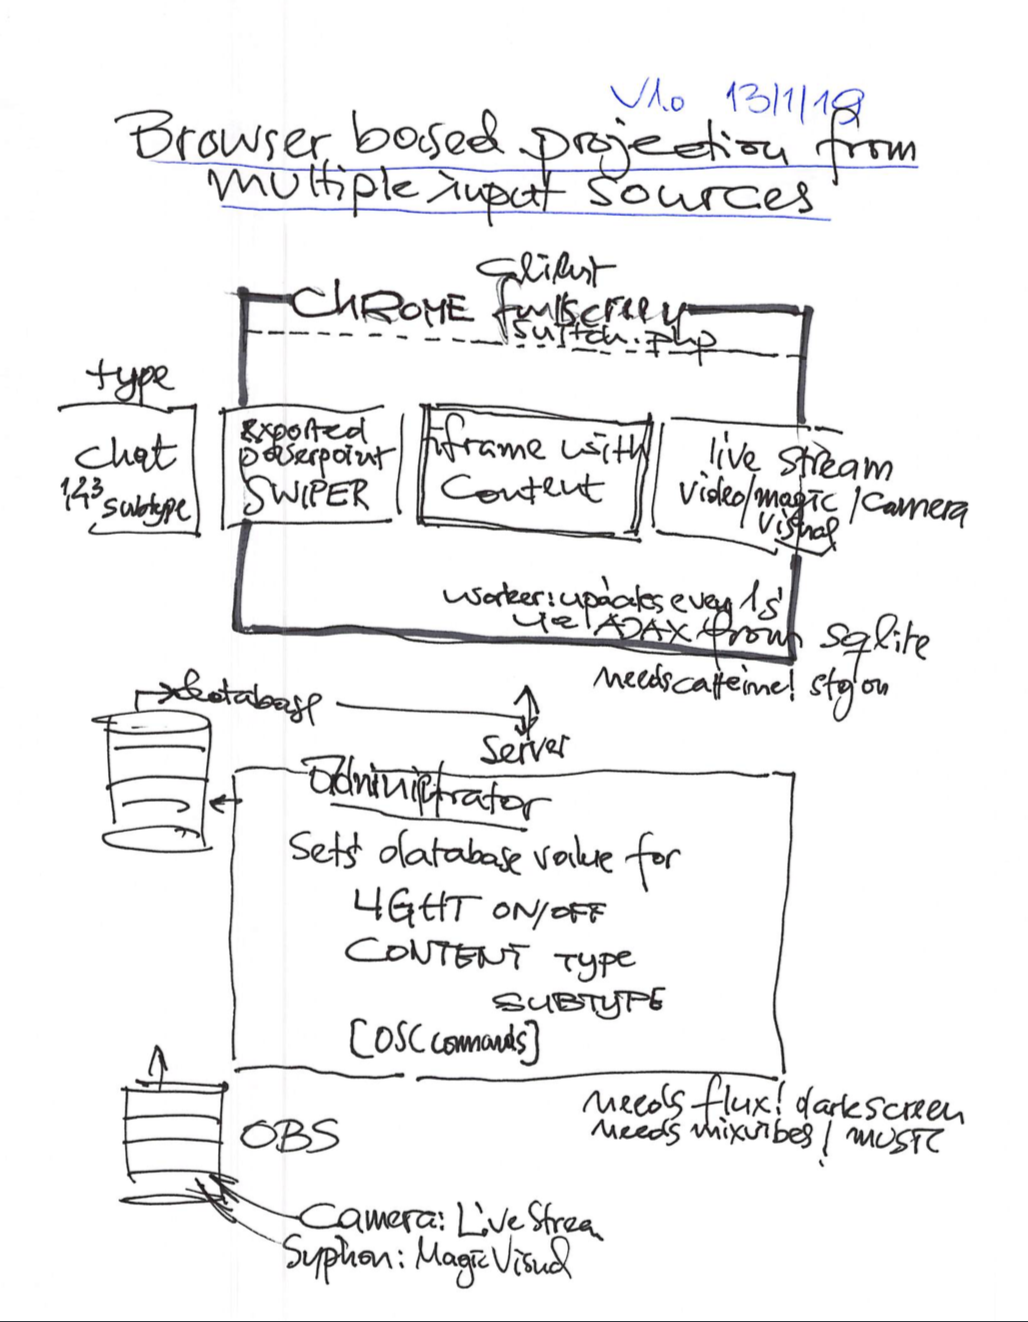 V1.0 13/1/19
Browser based projection from
multiple input sources
Client
CHROME fullscreen
switch.php
type
chat
1/2/3 subtype
exported
powerpoint
SWIPER
iframe with
Content
live stream
video/magic/camera
visual
worker: updates every 1s
AJAX from sqlite
needs caffeine! stg on
database
Server
Administrator
Sets database value for
LIGHT ON/OFF
CONTENT TYPE
SUBTYPE
[OSC commands]
needs flux! darkscreen
needs mixvibes! music
OBS
Camera: Live Stream
Syphon: Magic Visual